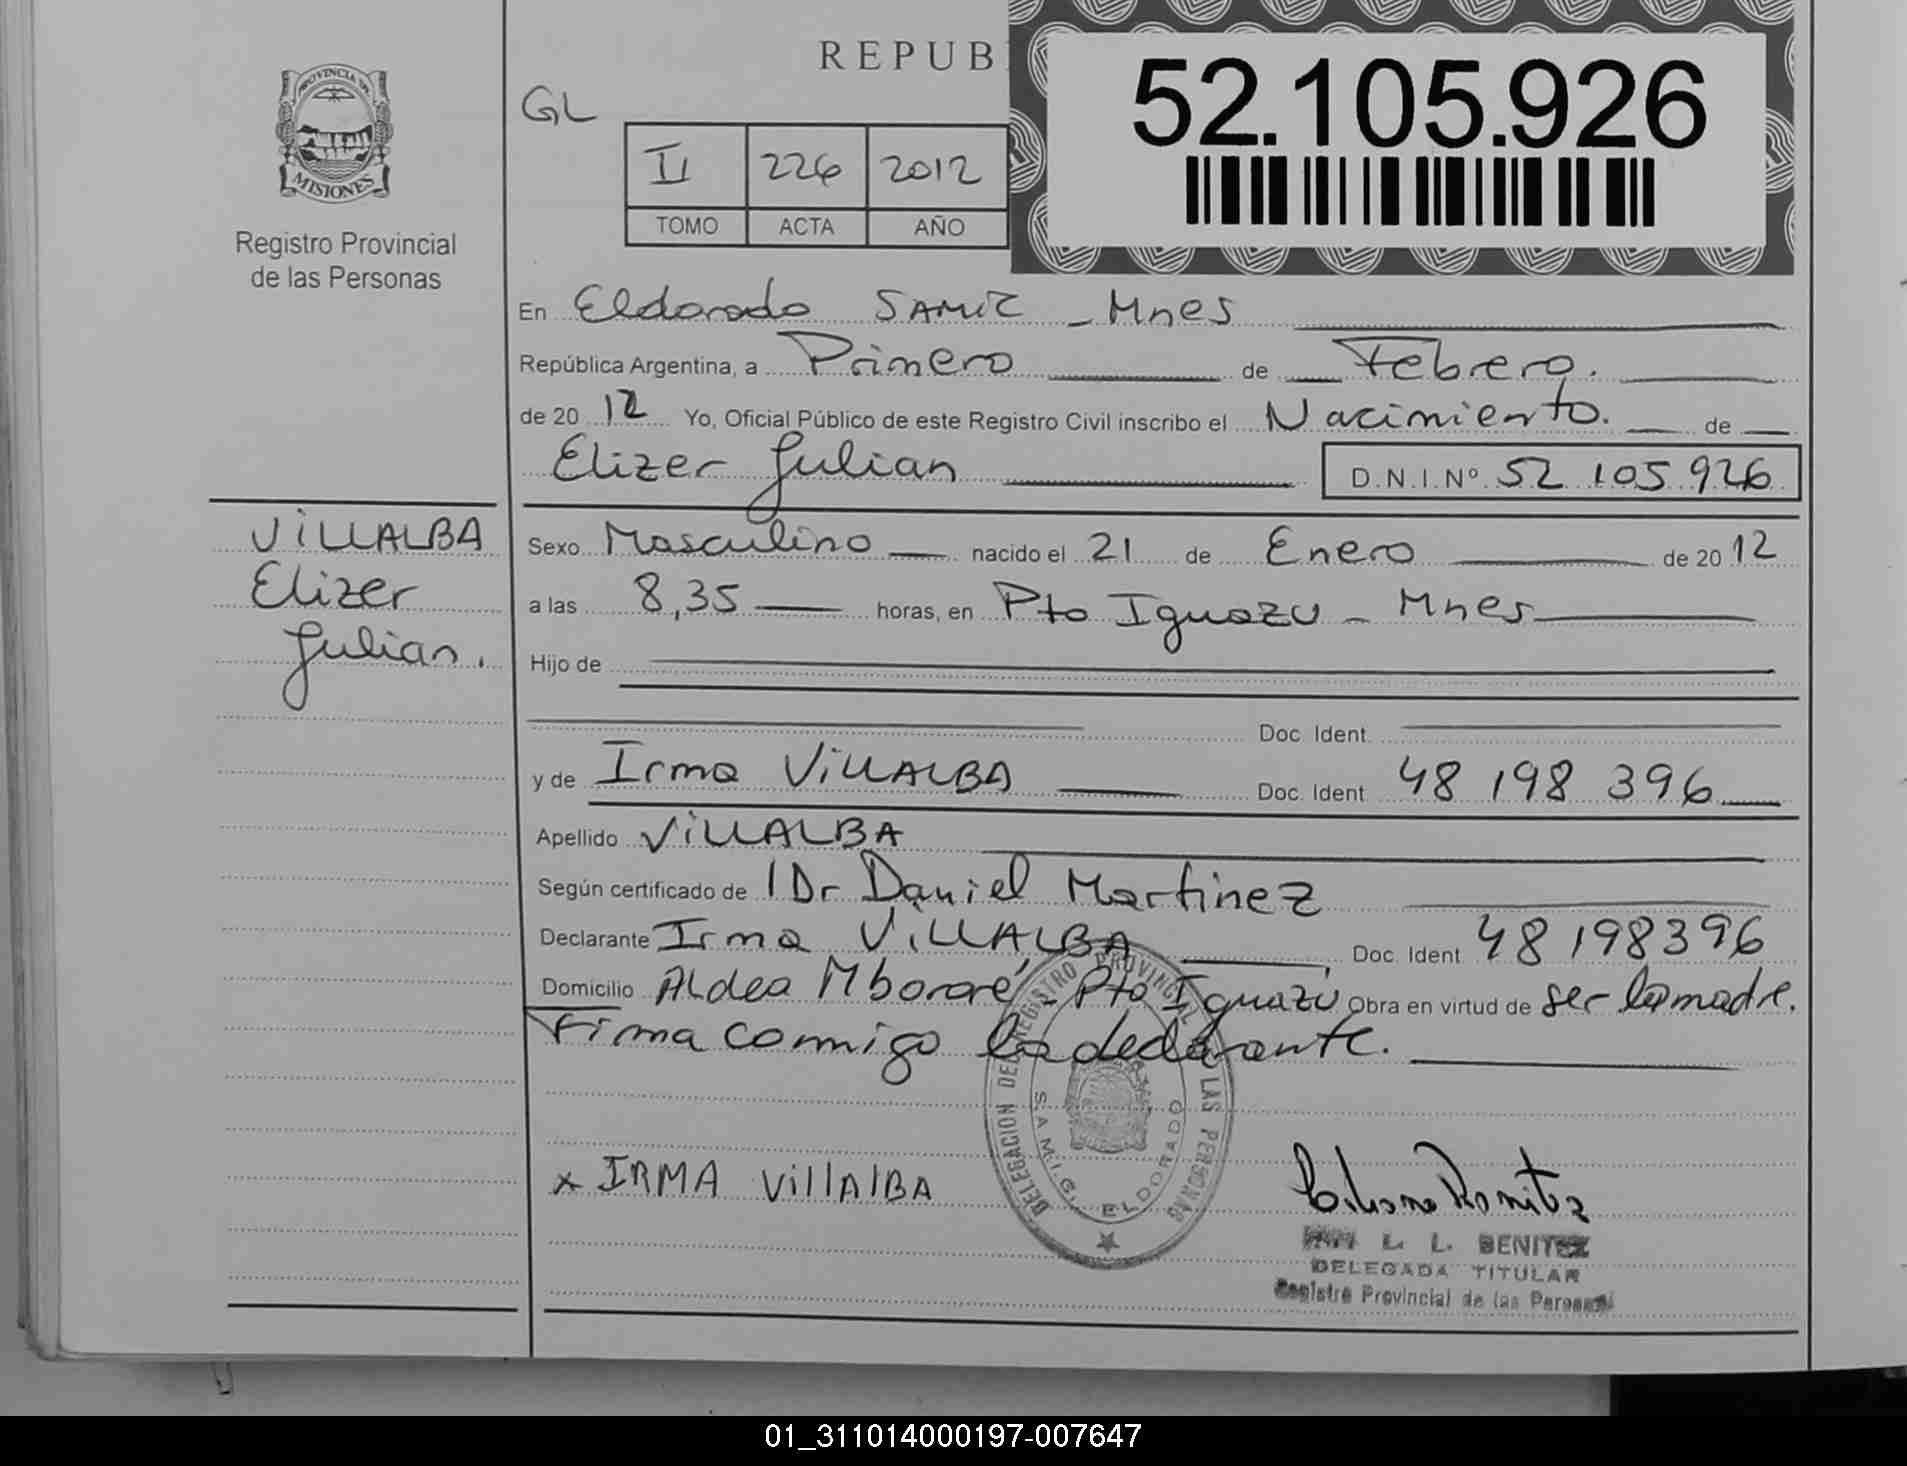 PROVINCIA DE
MISIONES
Registro Provincial
de las Personas
REPUB
52.105.926
GL
II 226 2012
TOMO ACTA AÑO
En Eldorado SAMIC - Mnes
República Argentina, a Primero de Febrero.
de 20 12 Yo, Oficial Público de este Registro Civil inscribo el Nacimiento. de
Elizer Julian D.N.I.Nº 52 105 926
VILLALBA
Elizer
Julian.
Sexo Masculino nacido el 21 de Enero de 20 12
a las 8,35 horas, en Pto Iguazu - Mnes
Hijo de
Doc. Ident.
y de Irma VILLALBA Doc. Ident. 48 198 396
Apellido VILLALBA
Según certificado de Dr Daniel Martinez
Declarante Irma VILLALBA Doc. Ident. 48 198396
Domicilio Aldea Mbororé - Pto Iguazú Obra en virtud de ser la madre.
Firma conmigo la declarante.
DELEGACION DEL REGISTRO PROVINCIAL LAS PERSONAS
S.A.M.I.C. ELDORADO
x IRMA VillAlBA
L. L. BENITEZ
DELEGADA TITULAR
Registro Provincial de las Personas
01_311014000197-007647